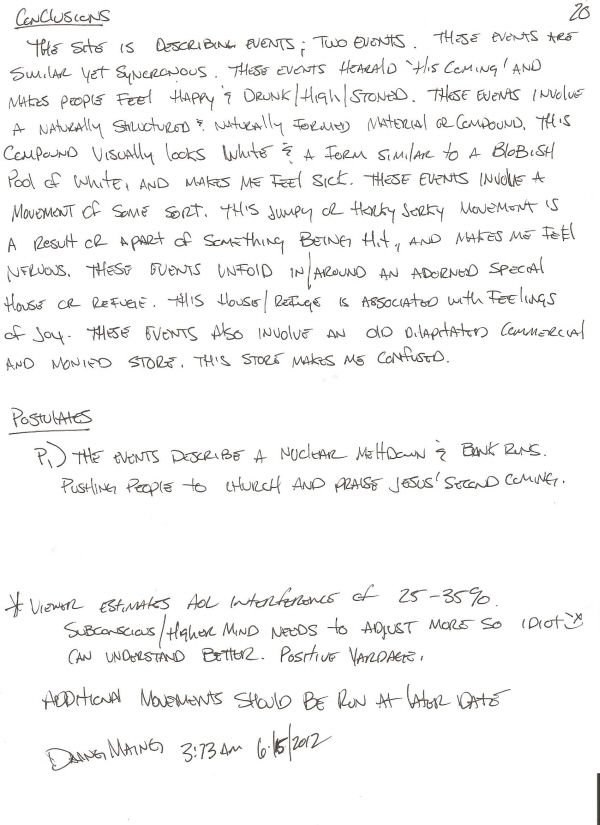 Conclusions 20
The site is describing events; two events. These events are
similar yet syncronous. These events hearald 'His Coming' and
makes people feel happy & drunk/high/stoned. These events involve
a naturally structured & naturally formed material or compound. This
compound visually looks white & a form similar to a blobish
pool of white, and makes me feel sick. These events involve a
movement of some sort. This jumpy or herky jerky movement is
a result or apart of something being hit, and makes me feel
nervous. These events unfold in/around an adorned special
house or refuge. This house/refuge is associated with feelings
of joy. These events also involve an old dilapitated commercial
and monied store. This store makes me confused.
Postulates
P1) The events describe a nuclear meltdown & bank runs.
Pushing people to church and praise Jesus' second coming.
* Viewer estimates AOL interference of 25-35%.
Subconscious/higher mind needs to adjust more so idiot
can understand better. Positive yardage.
Additional movements should be run at later date
3:73 AM 6/15/2012